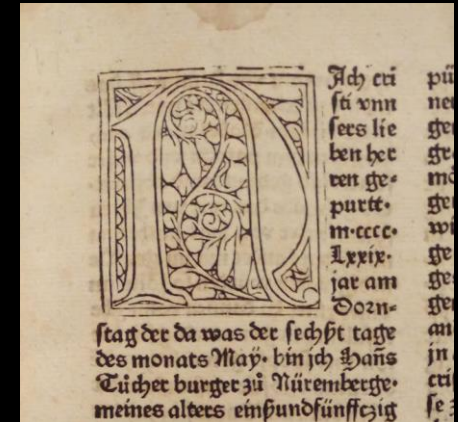 NAch cri
sti vnn
sers lie
ben her
ren ge⸗
purtt·
m·cccc·
Lxxix·
jar am
Dorn⸗
stag der da was der sechßt tage
des monats Maÿ· bin jch Hañs
Tůcher burger zů Nüremberge·
meines alters einßundfünffczig